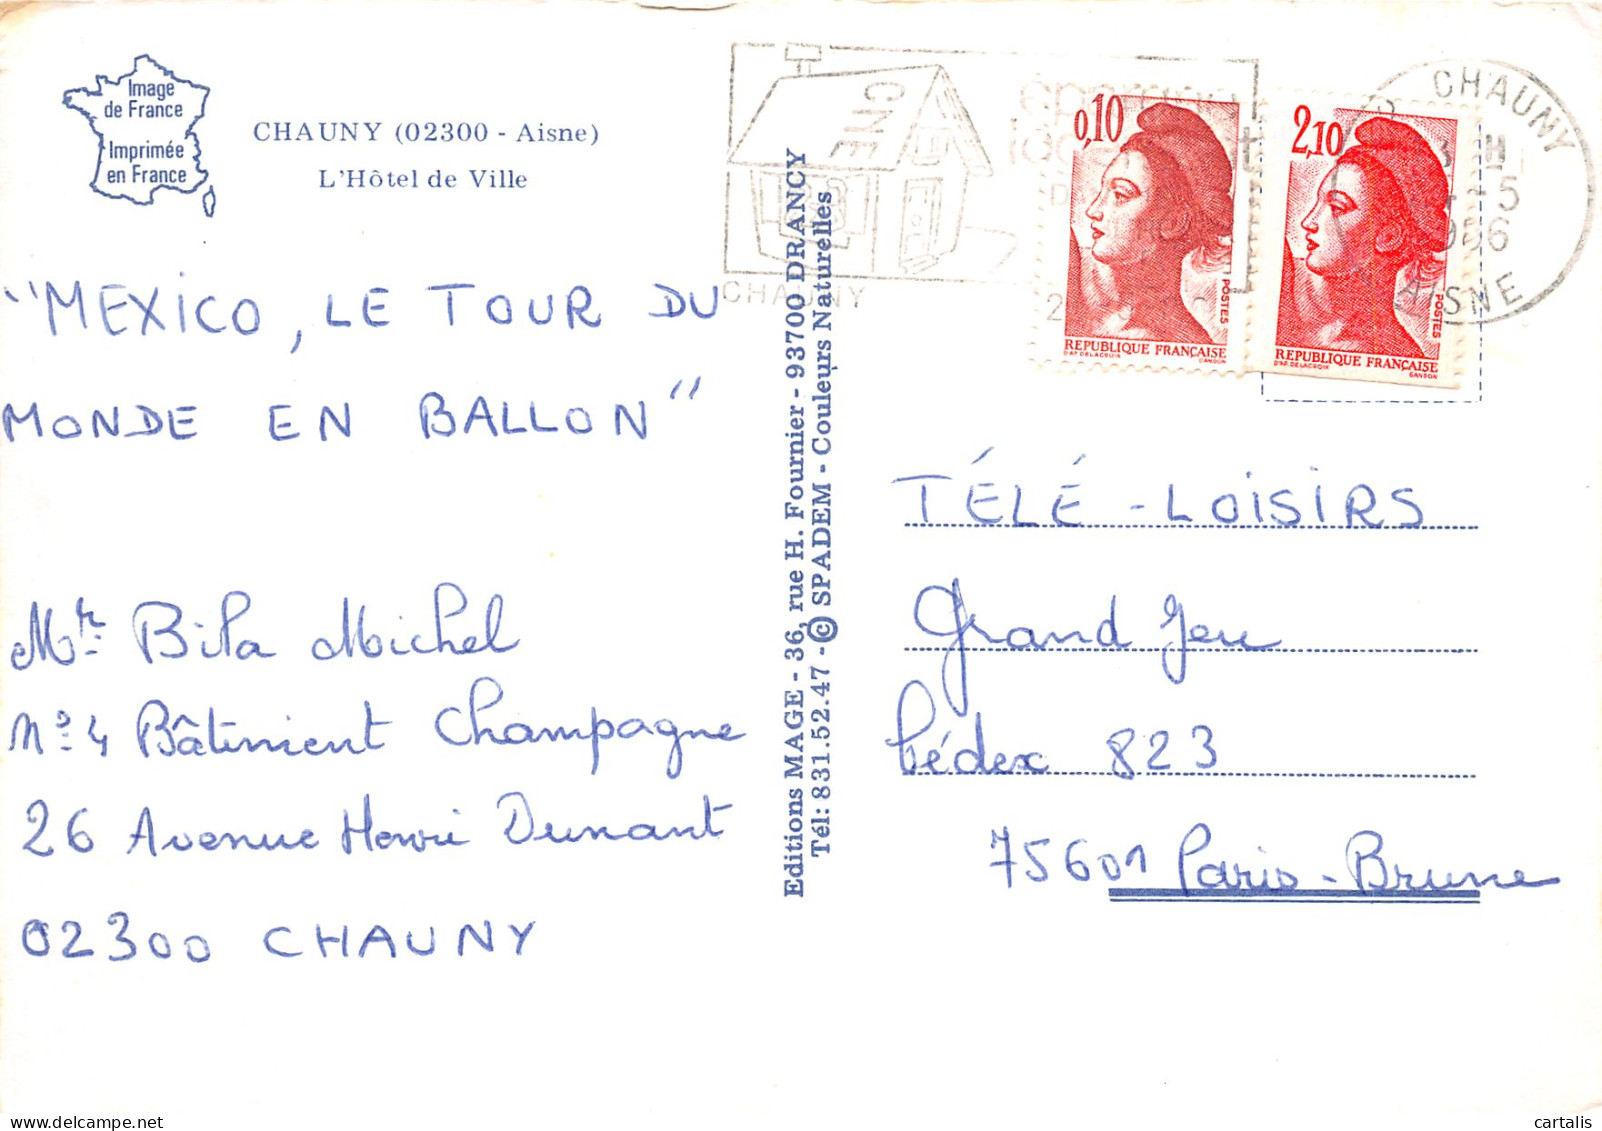 Image
de France
Imprimée
en France
CHAUNY (02300 - Aisne)
L'Hôtel de Ville
"MEXICO, LE TOUR DU
MONDE EN BALLON"
Mr Bila Michel
No 4 Bâtiment Champagne
26 Avenue Henri Dunant
02300 CHAUNY
Editions MAGE - 36, rue H. Fournier - 93700 DRANCY
Tél: 831.52.47 - © SPADEM - Couleurs Naturelles
CNE
CHAUNY
0,10
POSTES
REPUBLIQUE FRANÇAISE
D'AP. DELACROIX GANDON
2,10
POSTES
REPUBLIQUE FRANÇAISE
D'AP. DELACROIX GANDON
CHAUNY
AISNE
TÉLÉ-LOISIRS
Grand Jeu
Cédex 823
75601 Paris-Brune
cartalis